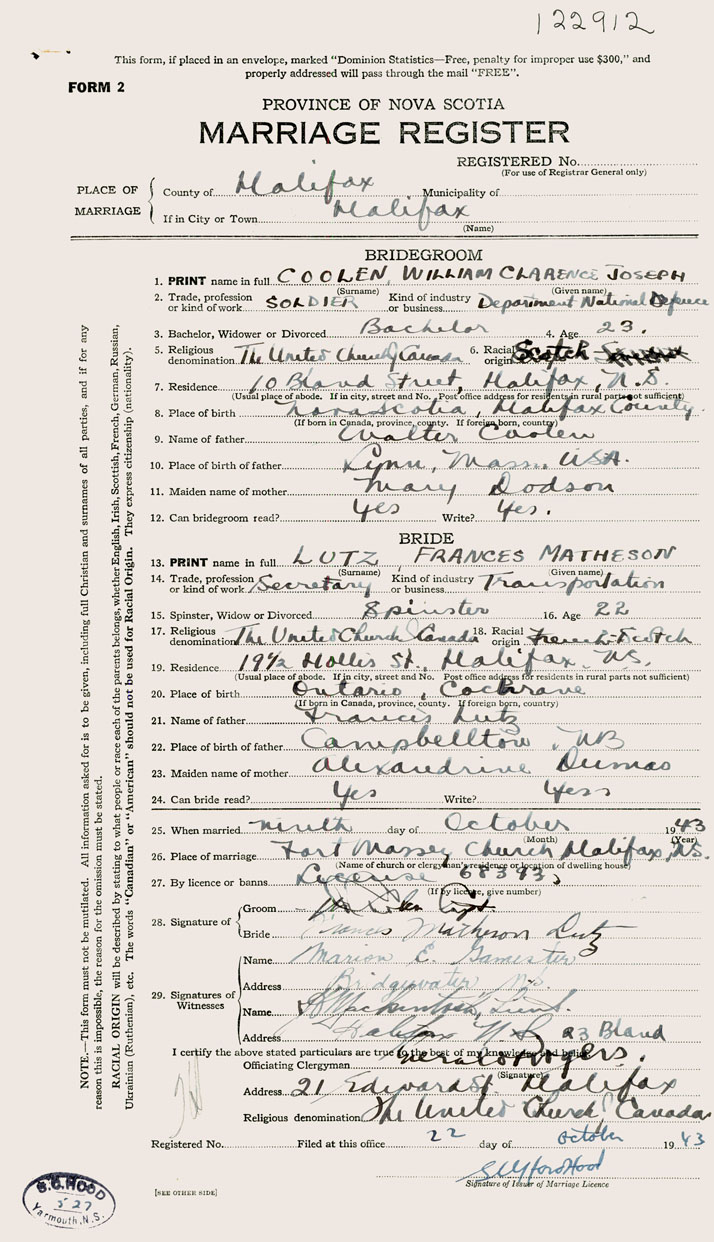 122912
This form, if placed in an envelope, marked "Dominion Statistics—Free, penalty for improper use $300," and
properly addressed will pass through the mail "FREE".
FORM 2
PROVINCE OF NOVA SCOTIA
MARRIAGE REGISTER
REGISTERED No.
(For use of Registrar General only)
PLACE OF MARRIAGE
County of Halifax Municipality of
If in City or Town Halifax
(Name)
BRIDEGROOM
1. PRINT name in full COOLEN, WILLIAM CLARENCE JOSEPH
(Surname) (Given name)
2. Trade, profession or kind of work SOLDIER Kind of industry or business Department National Defence
3. Bachelor, Widower or Divorced Bachelor 4. Age 23.
5. Religious denomination The United Church of Canada 6. Racial origin Scotch
7. Residence 10 Bland Street, Halifax, N.S.
(Usual place of abode. If in city, street and No. Post office address for residents in rural parts not sufficient)
8. Place of birth Nova Scotia, Halifax County.
(If born in Canada, province, county. If foreign born, country)
9. Name of father Walter Coolen
10. Place of birth of father Lynn, Mass. USA.
11. Maiden name of mother Mary Dodson
12. Can bridegroom read? Yes Write? Yes.
BRIDE
13. PRINT name in full LUTZ, FRANCES MATHESON
(Surname) (Given name)
14. Trade, profession or kind of work Secretary Kind of industry or business Transportation
15. Spinster, Widow or Divorced Spinster 16. Age 22
17. Religious denomination The United Church of Canada 18. Racial origin French-Scotch
19. Residence 19½ Hollis St., Halifax, N.S.
(Usual place of abode. If in city, street and No. Post office address for residents in rural parts not sufficient)
20. Place of birth Ontario, Cochrane
(If born in Canada, province, county. If foreign born, country)
21. Name of father Francis Lutz
22. Place of birth of father Campbellton, NB
23. Maiden name of mother Alexandrine Dumas
24. Can bride read? Yes Write? Yess
25. When married ninth day of October 1943
(Month) (Year)
26. Place of marriage Fort Massey Church Halifax, N.S.
(Name of church or clergyman's residence or location of dwelling house)
27. By licence or banns License 68393
(If by license, give number)
28. Signature of
Groom
Bride Frances Matheson Lutz
29. Signatures of Witnesses
Name Marion E. Gamester
Address Bridgewater N.S.
Name
Address Halifax N.S. 23 Bland
I certify the above stated particulars are true to the best of my knowledge and belief.
Officiating Clergyman Gerald Rogers.
(Signature)
Address 21 Edward St. Halifax
Religious denomination The United Church of Canada
Registered No. Filed at this office 22 day of October 1943
Signature of Issuer of Marriage Licence
[SEE OTHER SIDE]
S.C. HOOD
527
Yarmouth, N.S.
NOTE.—This form must not be mutilated. All information asked for is to be given, including full Christian and surnames of all parties, and if for any
reason this is impossible, the reason for the omission must be stated.
RACIAL ORIGIN will be described by stating to what people or race each of the parents belongs, whether English, Irish, Scottish, French, German, Russian,
Ukrainian (Ruthenian), etc. The words "Canadian" or "American" should not be used for Racial Origin. They express citizenship (nationality).